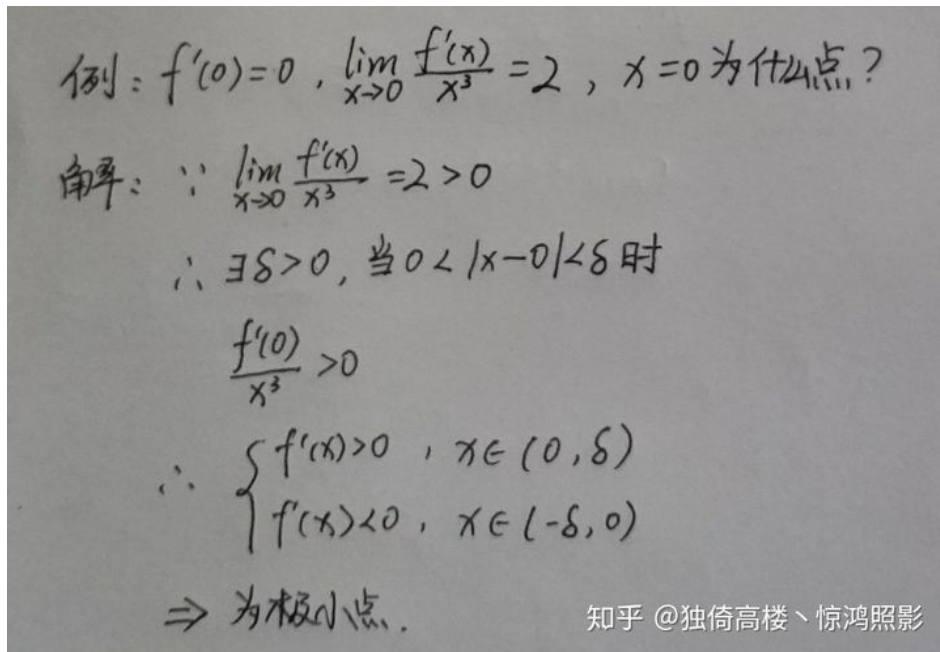 例: f'(0)=0, lim x→0 f'(x)/x³ =2, x=0为什么点?
解: ∵ lim x→0 f'(x)/x³ =2>0
∴ ∃δ>0, 当0<|x-0|<δ时
f'(0)/x³ >0
∴ { f'(x)>0, x∈(0,δ)
f'(x)<0, x∈(-δ,0)
⇒ 为极小点.
知乎 @独倚高楼丶惊鸿照影